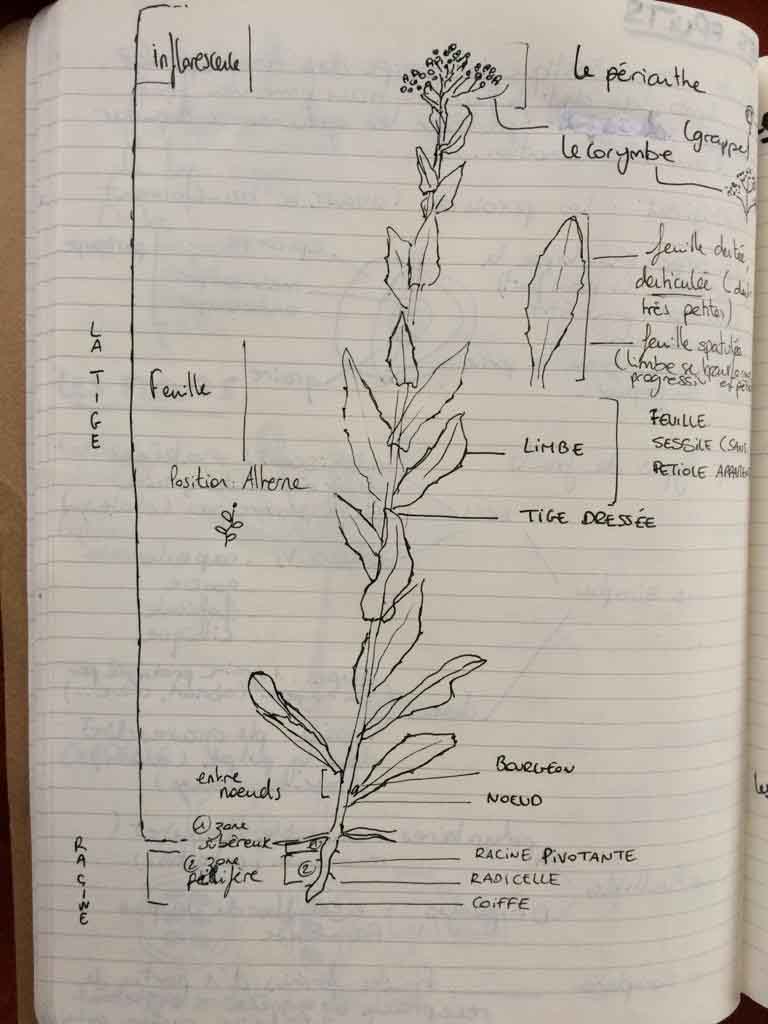 inflorescence
le périanthe
(grappe)
le corymbe
feuille dentée,
denticulée
très petites)
feuille spatulée
(limbe se
progressi
LA TIGE
Feuille
FEUILLE
SESSILE (SANS
PETIOLE APPAREN
LIMBE
Position : Alterne
TIGE DRESSÉE
BOURGEON
entre
noeuds
NOEUD
① zone
subéreux
①
RACINE
② zone
pilifère
②
RACINE PIVOTANTE
RADICELLE
COIFFE